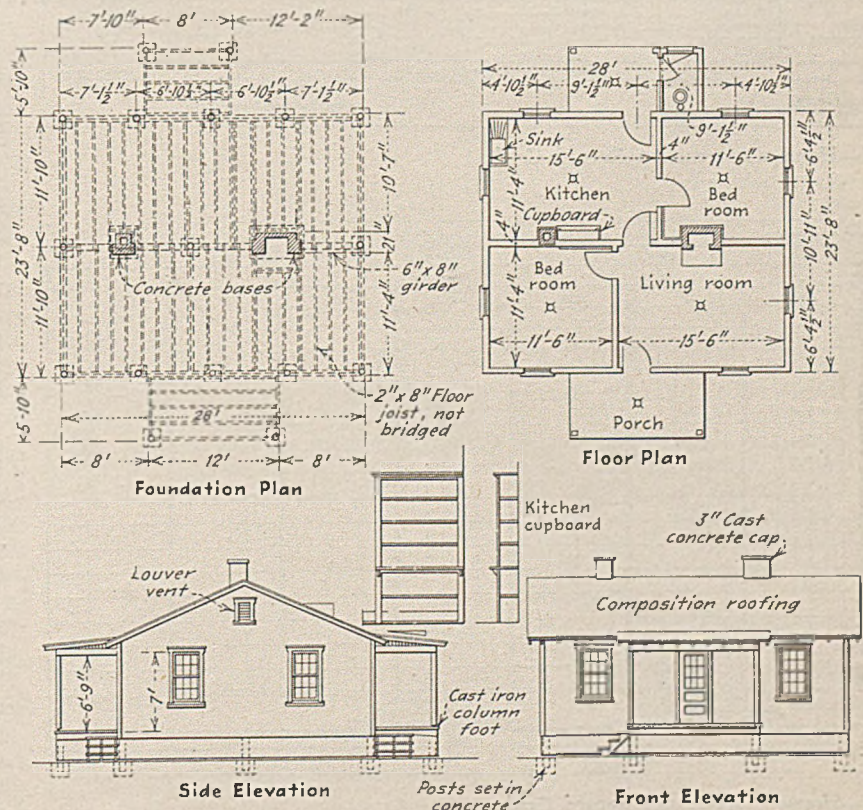 7'-10"
8'
12'-2"
5'-10"
7'-1½"
6'-10½"
6'-10½"
7'-1½"
11'-10"
10'-7"
23'-8"
21"
11'-10"
11'-4"
Concrete bases
6" x 8"
girder
5'-10"
28'
2" x 8" Floor
joist, not
bridged
8'
12'
8'
Foundation Plan
28'
4'-10½"
9'-1½"
4'-10½"
9'-1½"
Sink
4"
15'-6"
11'-6"
6'-4½"
11'-4"
Kitchen
Bed
room
4"
Cupboard
10'-11"
23'-8"
Bed
room
Living room
11'-4"
11'-6"
15'-6"
6'-4½"
Porch
Floor Plan
Kitchen
cupboard
Louver
vent
6'-9"
7'
Cast iron
column
foot
Side Elevation
Posts set in
concrete
3" Cast
concrete cap
Composition roofing
Front Elevation